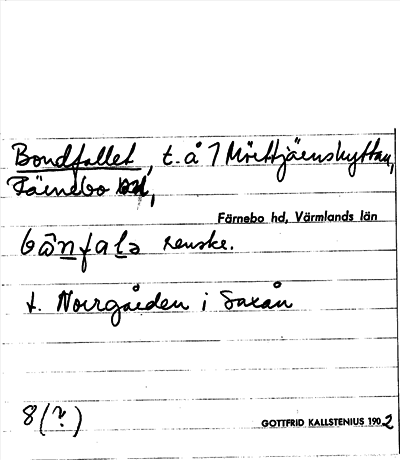 Bondfallet, t. å 7 Mörttjärnshyttan,
Färnebo hd,
Färnebo hd, Värmlands län
bo᷃nfalə
t. Norrgården i Saxån
8(?)
GOTTFRID KALLSTENIUS 1902